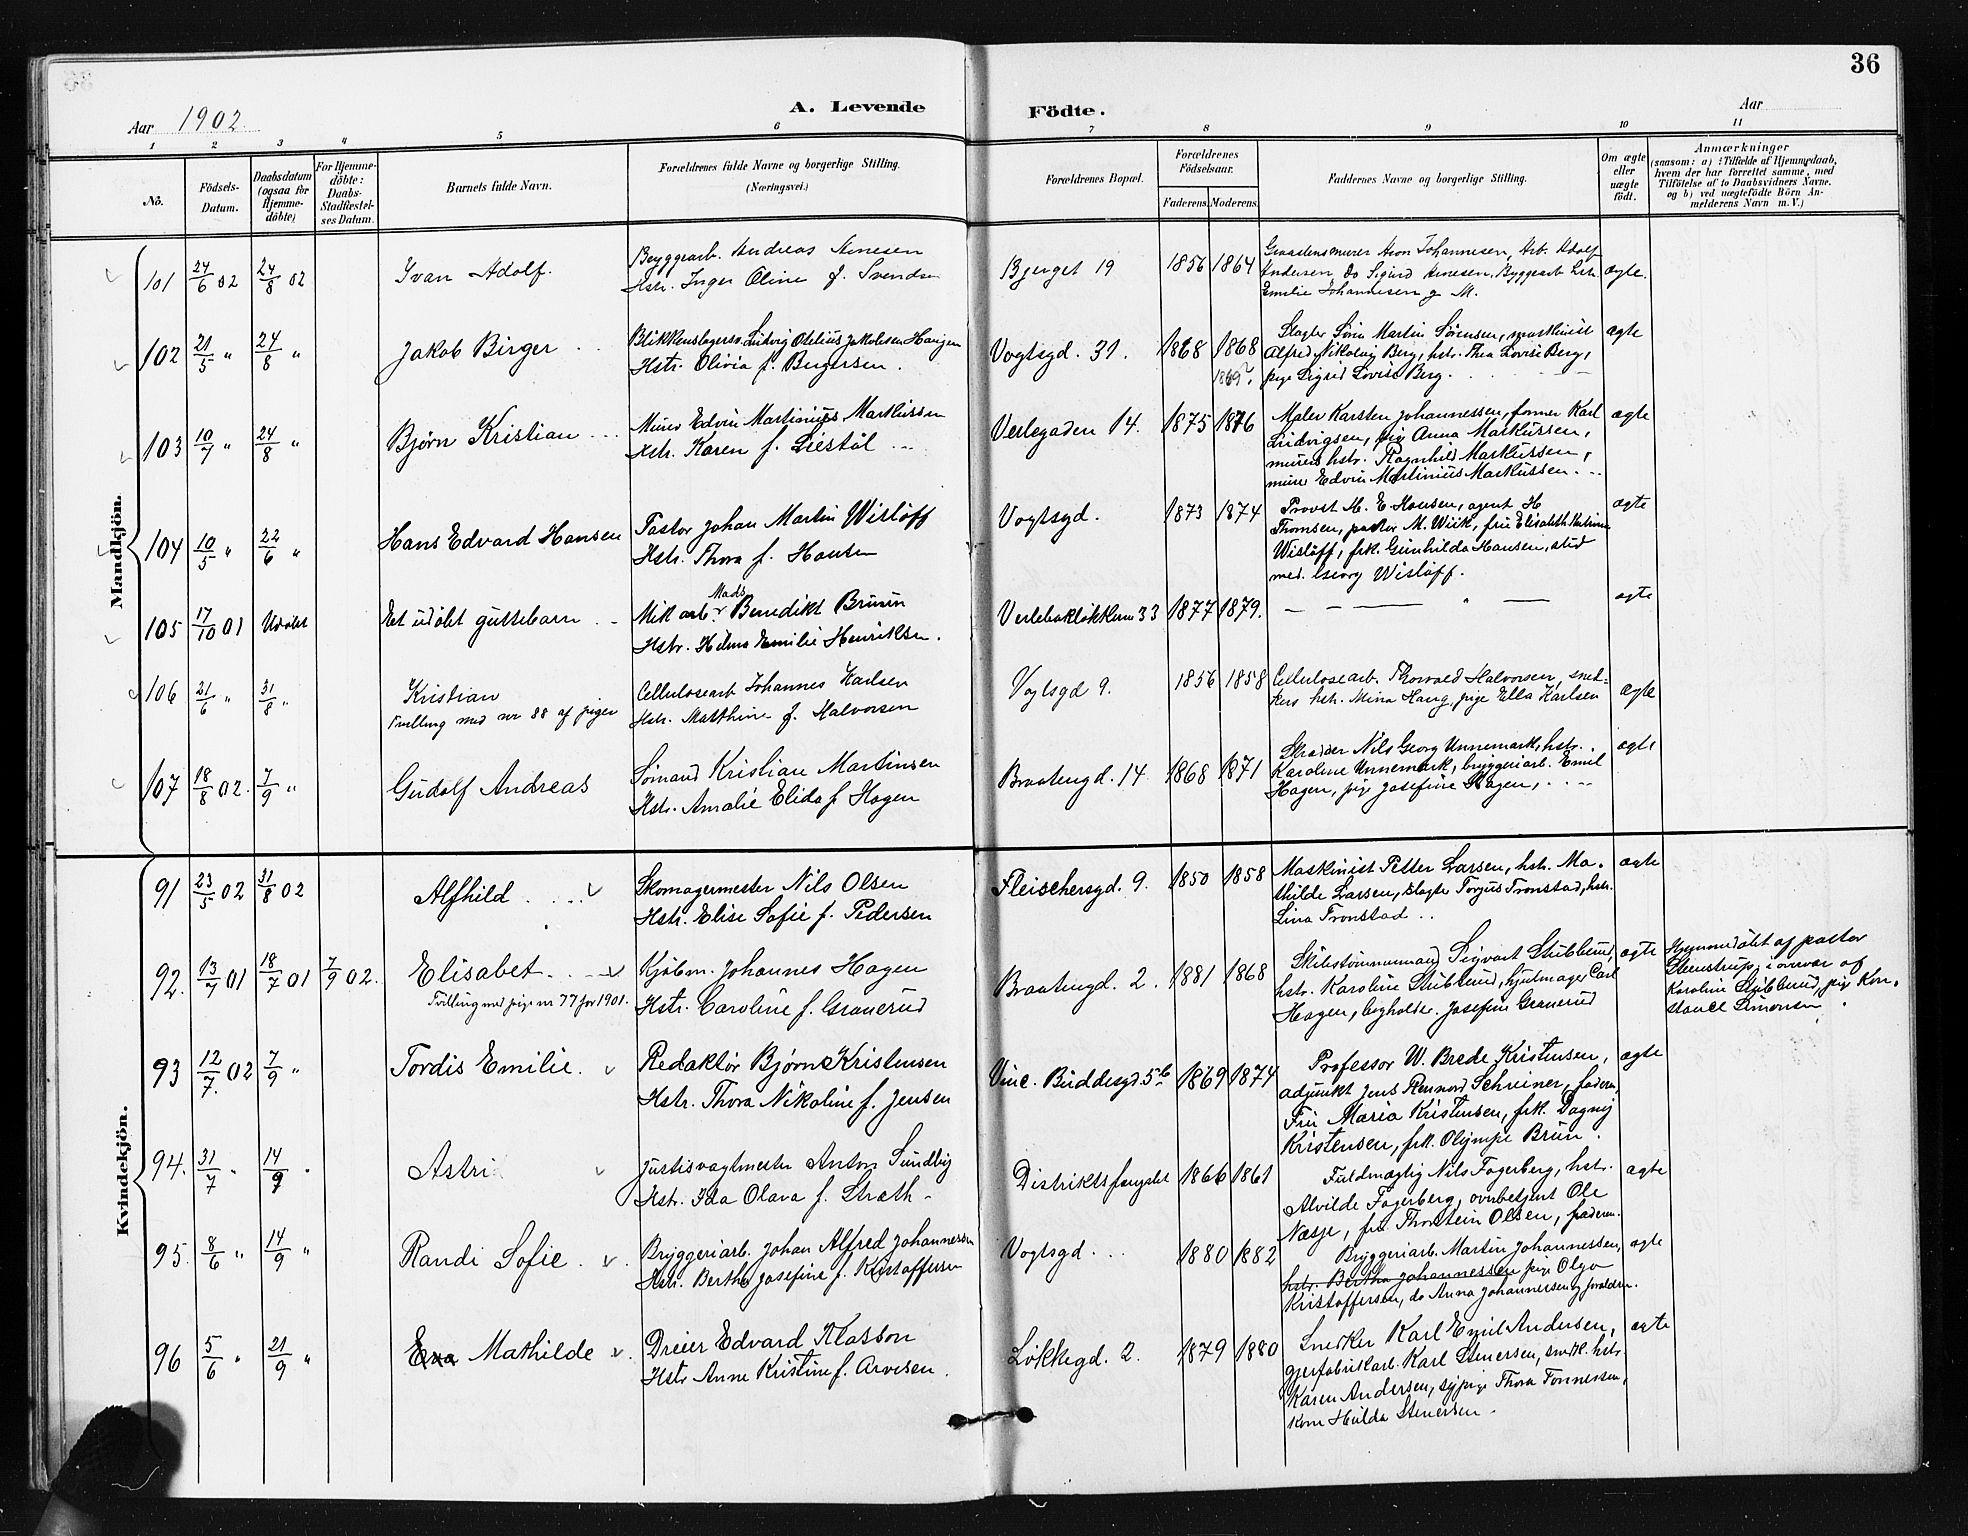 36
Aar 1902.
A. Levende Födte.
Aar
1 2 3 4 5 6 7 8 9 10 11
No.
Födsels-Datum.
Daabsdatum (ogsaa for Hjemme-döbte)
For Hjemme-döbte: Daabs-Stadfæstel-ses Datum.
Barnets fulde Navn.
Forældrenes fulde Navne og borgerlige Stilling. (Næringsvei.)
Forældrenes Bopæl.
Forældrenes Födselsaar.
Faderens. Moderens.
Faddernes Navne og borgerlige Stilling.
Om ægte eller uægte født.
Anmærkninger
(saasom: a) i Tilfælde af Hjemmedaab, hvem der har forrettet samme, med Tilföielse af to Daabsvidners Navne. og b) ved uægtefödte Börn Anmelderens Navn m. V.)
Mandkjön.
101 24/6 02 24/8 02 Ivan Adolf.
Byggearb. Andreas Arnesen
Hstr. Inger Oline f. Svendsen
Bjerget 19 1856 1864
Graastensmurer Aron Johannesen, Arb. Adolf
Andersen, do Sigurd Arnesen, Byggearb hstr.
Emilie Johannesen og M.
ægte.
102 21/5 " 24/8 " Jakob Birger
Blikkenslagersv. Ludvig Otelius Jakobsen Haugen
Hstr. Olivia f. Birgersen.
Vogtsgd. 31. 1868 1868
1869?
Slagter Sörin Martin Sørensen, maskinist
Alfred Nikolaiy Berg, hstr. Thea Lovise Berg,
pige Sigrid Lovise Berg.
ægte
103 10/7 " 24/8 " Bjørn Kristian
Murer Edvin Martinius Markussen
Hstr. Karen f. Liestöl
Verlegaden 14. 1875 1876
Maler Karsten Johannessen, former Karl
Ludvigsen, pige Anna Markussen,
murers hstr. Ragnhild Markussen,
murer Edvin Martinius Markussen.
ægte
104 10/5 " 22/6 " Hans Edvard Hansen
Pastor Johan Martin Wisløff
Hstr. Thora f. Hansen
Vogtsgd. 1873 1874
Provst H. E. Hansen, agent H
Thomsen, pastor M. Wiik, fru Elisabeth Katrine
Wisløff, frk. Gunhilda Hansen, stud
med. Georg Wisløff.
ægte
105 17/10 01 Udöbt Et udöbt guttebarn
Mek arb. Mads Benedikt Bruun
Hstr. Helma Emilie Henriksen.
Verlebakløkken 33 1877 1879.
— — — " —
ægte
106 21/6 " 31/8 " Kristian
Tvilling med nr 88 af piger
Cellulosearb Johannes Karlsen
Hstr. Matthine f. Halvorsen
Vogtsgd 9. 1856 1858
Cellulosearb. Thorvald Halvorsen, snek-
kers hstr. Mina Haug, pige Ella Karlsen
ægte
107 18/8 02. 7/9 " Gudolf Andreas
Sömand Kristian Martinsen
Hstr. Amalie Elida f. Hagen
Braatengd. 14 1868 1871
Skrædder Nils Georg Unnemark, hstr.
Karoline Unnemark, bryggeriarb. Emil
Hagen, pige Josefine Hagen,
ægte
Kvindekjön.
91 23/5 02 31/8 02 Alfhild
Skomagermester Nils Olsen
Hstr. Elise Sofie f. Pedersen
Fleischersgd. 9. 1850 1858
Maskinist Petter Larsen, hstr. Ma-
thilde Larsen, slagter Torgus Tronstad, hstr.
Lina Tronstad
ægte
92. 13/7 01 18/7 01 7/9 02. Elisabet
Tvilling med pige nr 77 for 1901.
Kjöbm. Johannes Hagen
Hstr. Caroline f. Granerud
Braatengd. 2. 1881 1868
Skibstømmermand Sigvart Stubberud,
hstr. Karoline Stubberud, hjulmager Carl
Hagen, bogholder. Josefine Granerud
ægte
Hjemmedöbt af pastor
Steenstrup, i overvær af
Karoline Stubberud, pige Kon-
stance Simonsen
93 12/7. 02 7/9 " Tordis Emilie.
Redaktör Bjørn Kristensen
Hstr. Thora Nikoline f. Jensen
Vinc. Buddesgd. 5b 1869 1874
Professor W. Brede Kristensen,
adjunkt Jens Rennord Schreiner, faderen,
Fru Maria Kristensen, frk. Dagny
Kristensen, frk. Olympe Brun.
ægte
94. 31/7 " 14/9 " Astri
Justisvagtmester Anton Sundby
Hstr. Ida Olava f. Stræth
Distriktsfængslet 1866 1861
Fuldmægtig Nils Fagerberg, hstr.
Alvilde Fagerberg, overbetjent Ole
Næsje, fru Thorstein Olsen, faderen.
ægte
95. 8/6 " 14/9 " Randi Sofie
Bryggeriarb. Johan Alfred Johannessen
Hstr. Bertha Josefine f. Kristoffersen
Vogtsgd. 1880 1882
Bryggeriarb. Martin Johannessen,
hstr. Bertha Johannessen pige Olga
Kristoffersen, do Anna Johannessen og forældrene.
ægte
96 5/6 " 21/9 " Eva Mathilde
Dreier Edvard Klasson
Hstr Anne Kristine f. Arvesen.
Løkkegd. 2. 1879 1880
Snedker Karl Emil Andersen,
gjerfabrikarb. Karl Stenersen, snedk. hstr.
Karen Andersen, sypige Thora Tonnessen,
kone Hulda Stenersen.
ægte